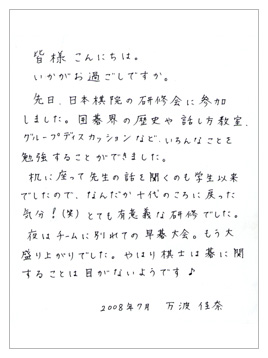 皆様こんにちは。
いかがお過ごしですか。
先日、日本棋院の研修会に参加
しました。囲碁界の歴史や話し方教室、
グループディスカッションなど、いろんなことを
勉強することができました。
机に座って先生の話を聞くのも学生以来
でしたので、なんだか十代のころに戻った
気分！(笑) とても有意義な研修でした。
夜はチームに別れての早碁大会。もう大
盛り上がりでした。やはり棋士は碁に関
することは目がないようです♪
2008年7月 万波佳奈